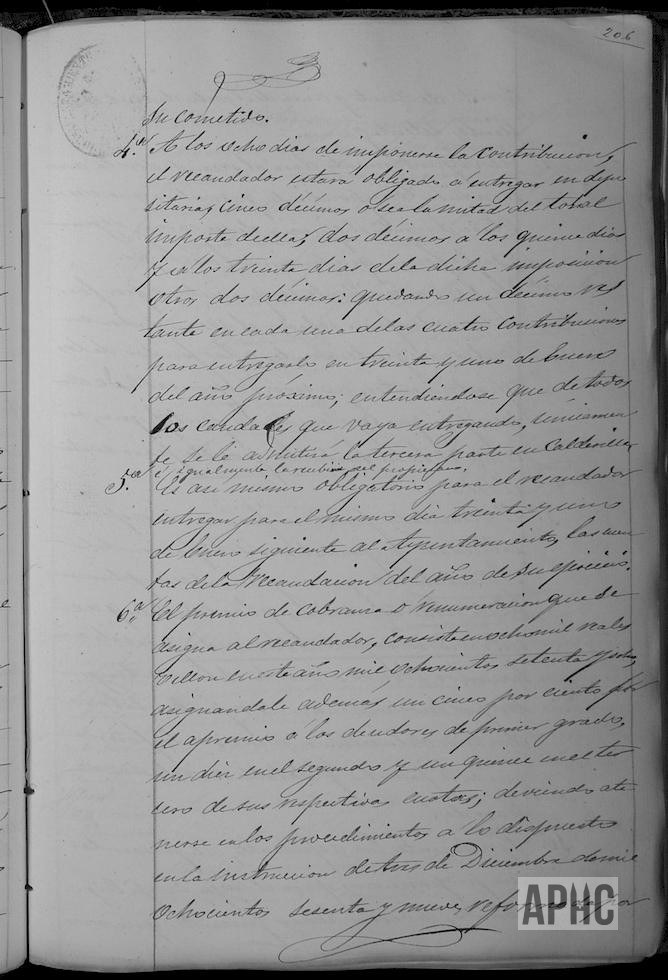 206
su cometido.
4.ª A los ocho dias de imponerse la contribucion,
el recaudador estará obligado á entregar en depo
sitaria, cinco décimos ó sea la mitad del total
importe de ella; dos décimos á los quince dias
y á los treinta dias de la dicha imposicion
otros dos décimos: quedando un décimo res
tante en cada una de las cuatro contribuciones
para entregarlo en treinta y uno de Enero
del año próximo; entendiéndose que de todos
los caudales que vaya entregando, únicamen
te se le admitirá la tercera parte en calderilla,
é igualmente la recibirá del propio
5.ª Es asi mismo obligatorio para el recaudador
entregar para el mismo dia treinta y uno
de Enero siguiente al Ayuntamiento, las cuen
tas de la recaudacion del año de su ejercicio.
6.ª El premio de cobranza ó renumeracion que se
asigna al recaudador, consiste en ocho mil reales
vellon en este año mil ochocientos setenta y
asignandole además un cinco por ciento por
el apremio á los deudores de primer grado,
un diez en el segundo y un quince en el ter
cero de sus respectivas cuotas; deviendo ate
nerse en los procedimientos á lo dispuesto
en la instruccion de tres de Diciembre de mil
ochocientos sesenta y nueve, reformada por
APHC